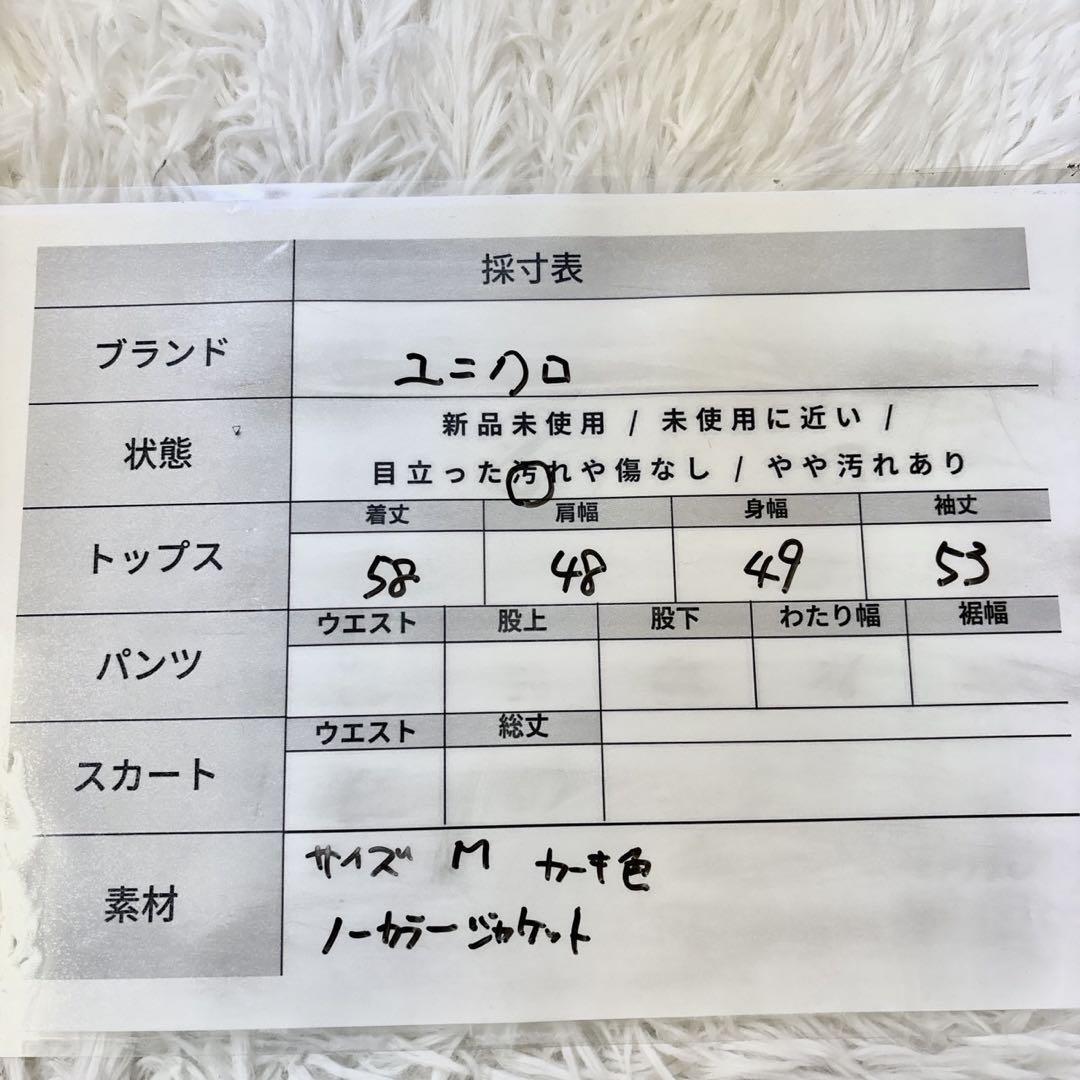 採寸表
ブランド
ユニクロ
状態
新品未使用 / 未使用に近い /
目立った汚れや傷なし / やや汚れあり
トップス
着丈 肩幅 身幅 袖丈
58 48 49 53
パンツ
ウエスト 股上 股下 わたり幅 裾幅
スカート
ウエスト 総丈
素材
サイズ M カーキ色
ノーカラージャケット